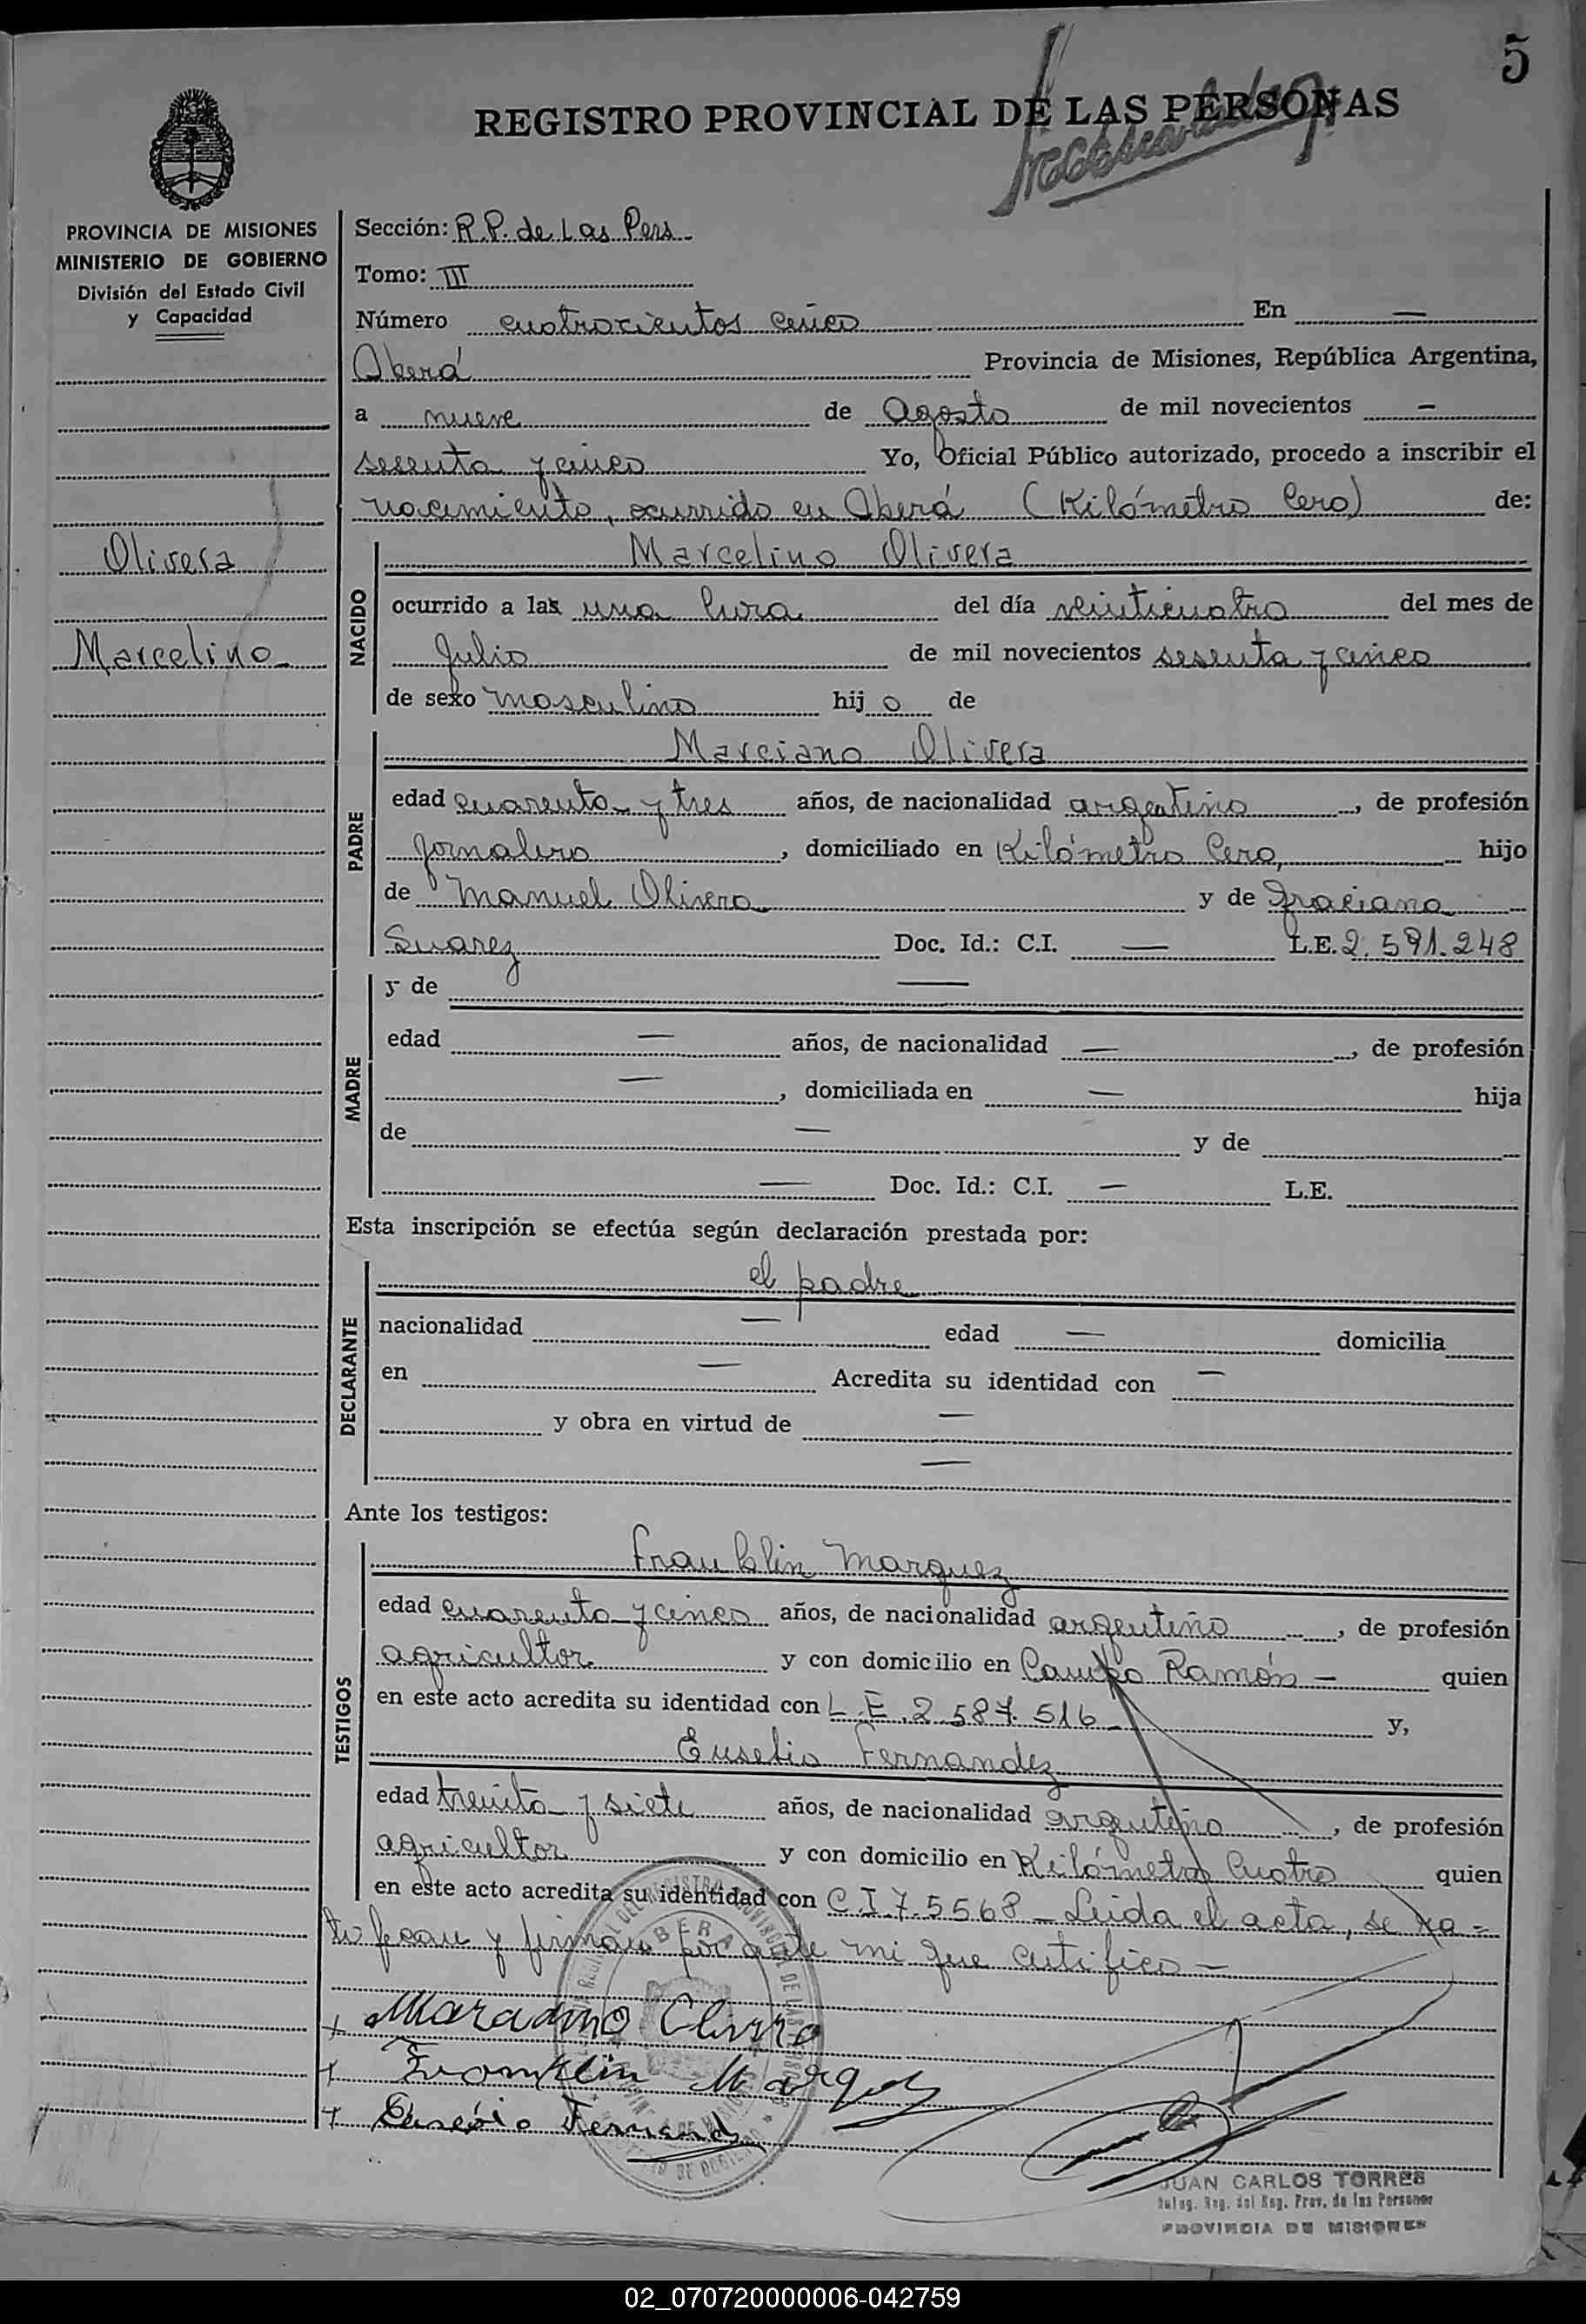 5
REGISTRO PROVINCIAL DE LAS PERSONAS
PROVINCIA DE MISIONES
MINISTERIO DE GOBIERNO
División del Estado Civil
y Capacidad
Olivera
Marcelino
Sección: R.P. de Las Pers
Tomo: III
Número cuatrocientos cinco En —
Oberá Provincia de Misiones, República Argentina,
a nueve de Agosto de mil novecientos —
sesenta y cinco Yo, Oficial Público autorizado, procedo a inscribir el
nacimiento, ocurrido en Oberá (Kilómetro Cero) de:
NACIDO
Marcelino Olivera
ocurrido a las una hora del día veinticuatro del mes de
Julio de mil novecientos sesenta y cinco
de sexo masculino hijo de
PADRE
Marciano Olivera
edad cuarenta y tres años, de nacionalidad argentino, de profesión
Jornalero, domiciliado en Kilómetro Cero, hijo
de Manuel Olivera y de Graciana
Suarez Doc. Id.: C.I. — L.E. 2.591.248
MADRE
y de —
edad — años, de nacionalidad —, de profesión
—, domiciliada en — hija
de — y de
— Doc. Id.: C.I. — L.E.
Esta inscripción se efectúa según declaración prestada por:
DECLARANTE
el padre
nacionalidad — edad — domicilia
en — Acredita su identidad con —
y obra en virtud de —
—
Ante los testigos:
TESTIGOS
Franklin Marquez
edad cuarenta y cinco años, de nacionalidad argentino, de profesión
agricultor y con domicilio en Campo Ramón — quien
en este acto acredita su identidad con L.E. 2.587.516 — y,
Eusebio Fernandez
edad treinta y siete años, de nacionalidad argentino, de profesión
agricultor y con domicilio en Kilómetro Cuatro quien
en este acto acredita su identidad con C.I. 7.5568 — Leida el acta, se ra=
tifican y firman por ante mi que certifico —
+ Olivera
+ Franklin Marquez
+ Eusebio Fernand
JUAN CARLOS TORRES
PROVINCIA DE MISIONES
02_070720000006-042759